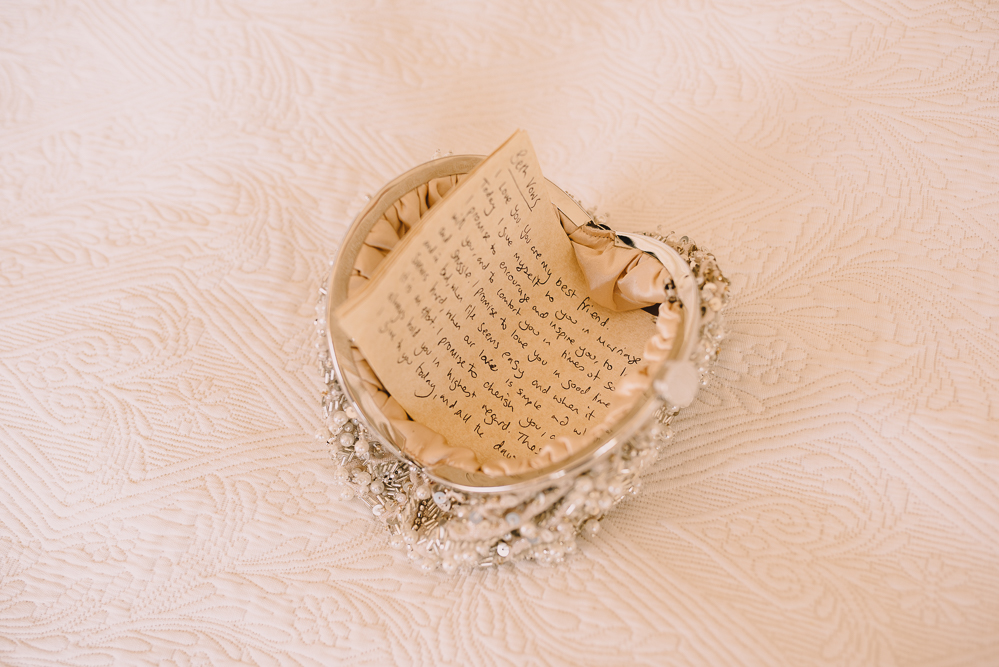 Beth Vows
I love you. You are my best friend.
Today I give myself to you in marriage.
I promise to encourage and inspire you, to l
with you, and to comfort you in times of so
and struggle. I promise to love you in good time
and in bad, when life seems easy and when it
seems hard, when our love is simple and w
is an effort. I promise to cherish you, a
always hold you in highest regard. Thes
give to you today, and all the day